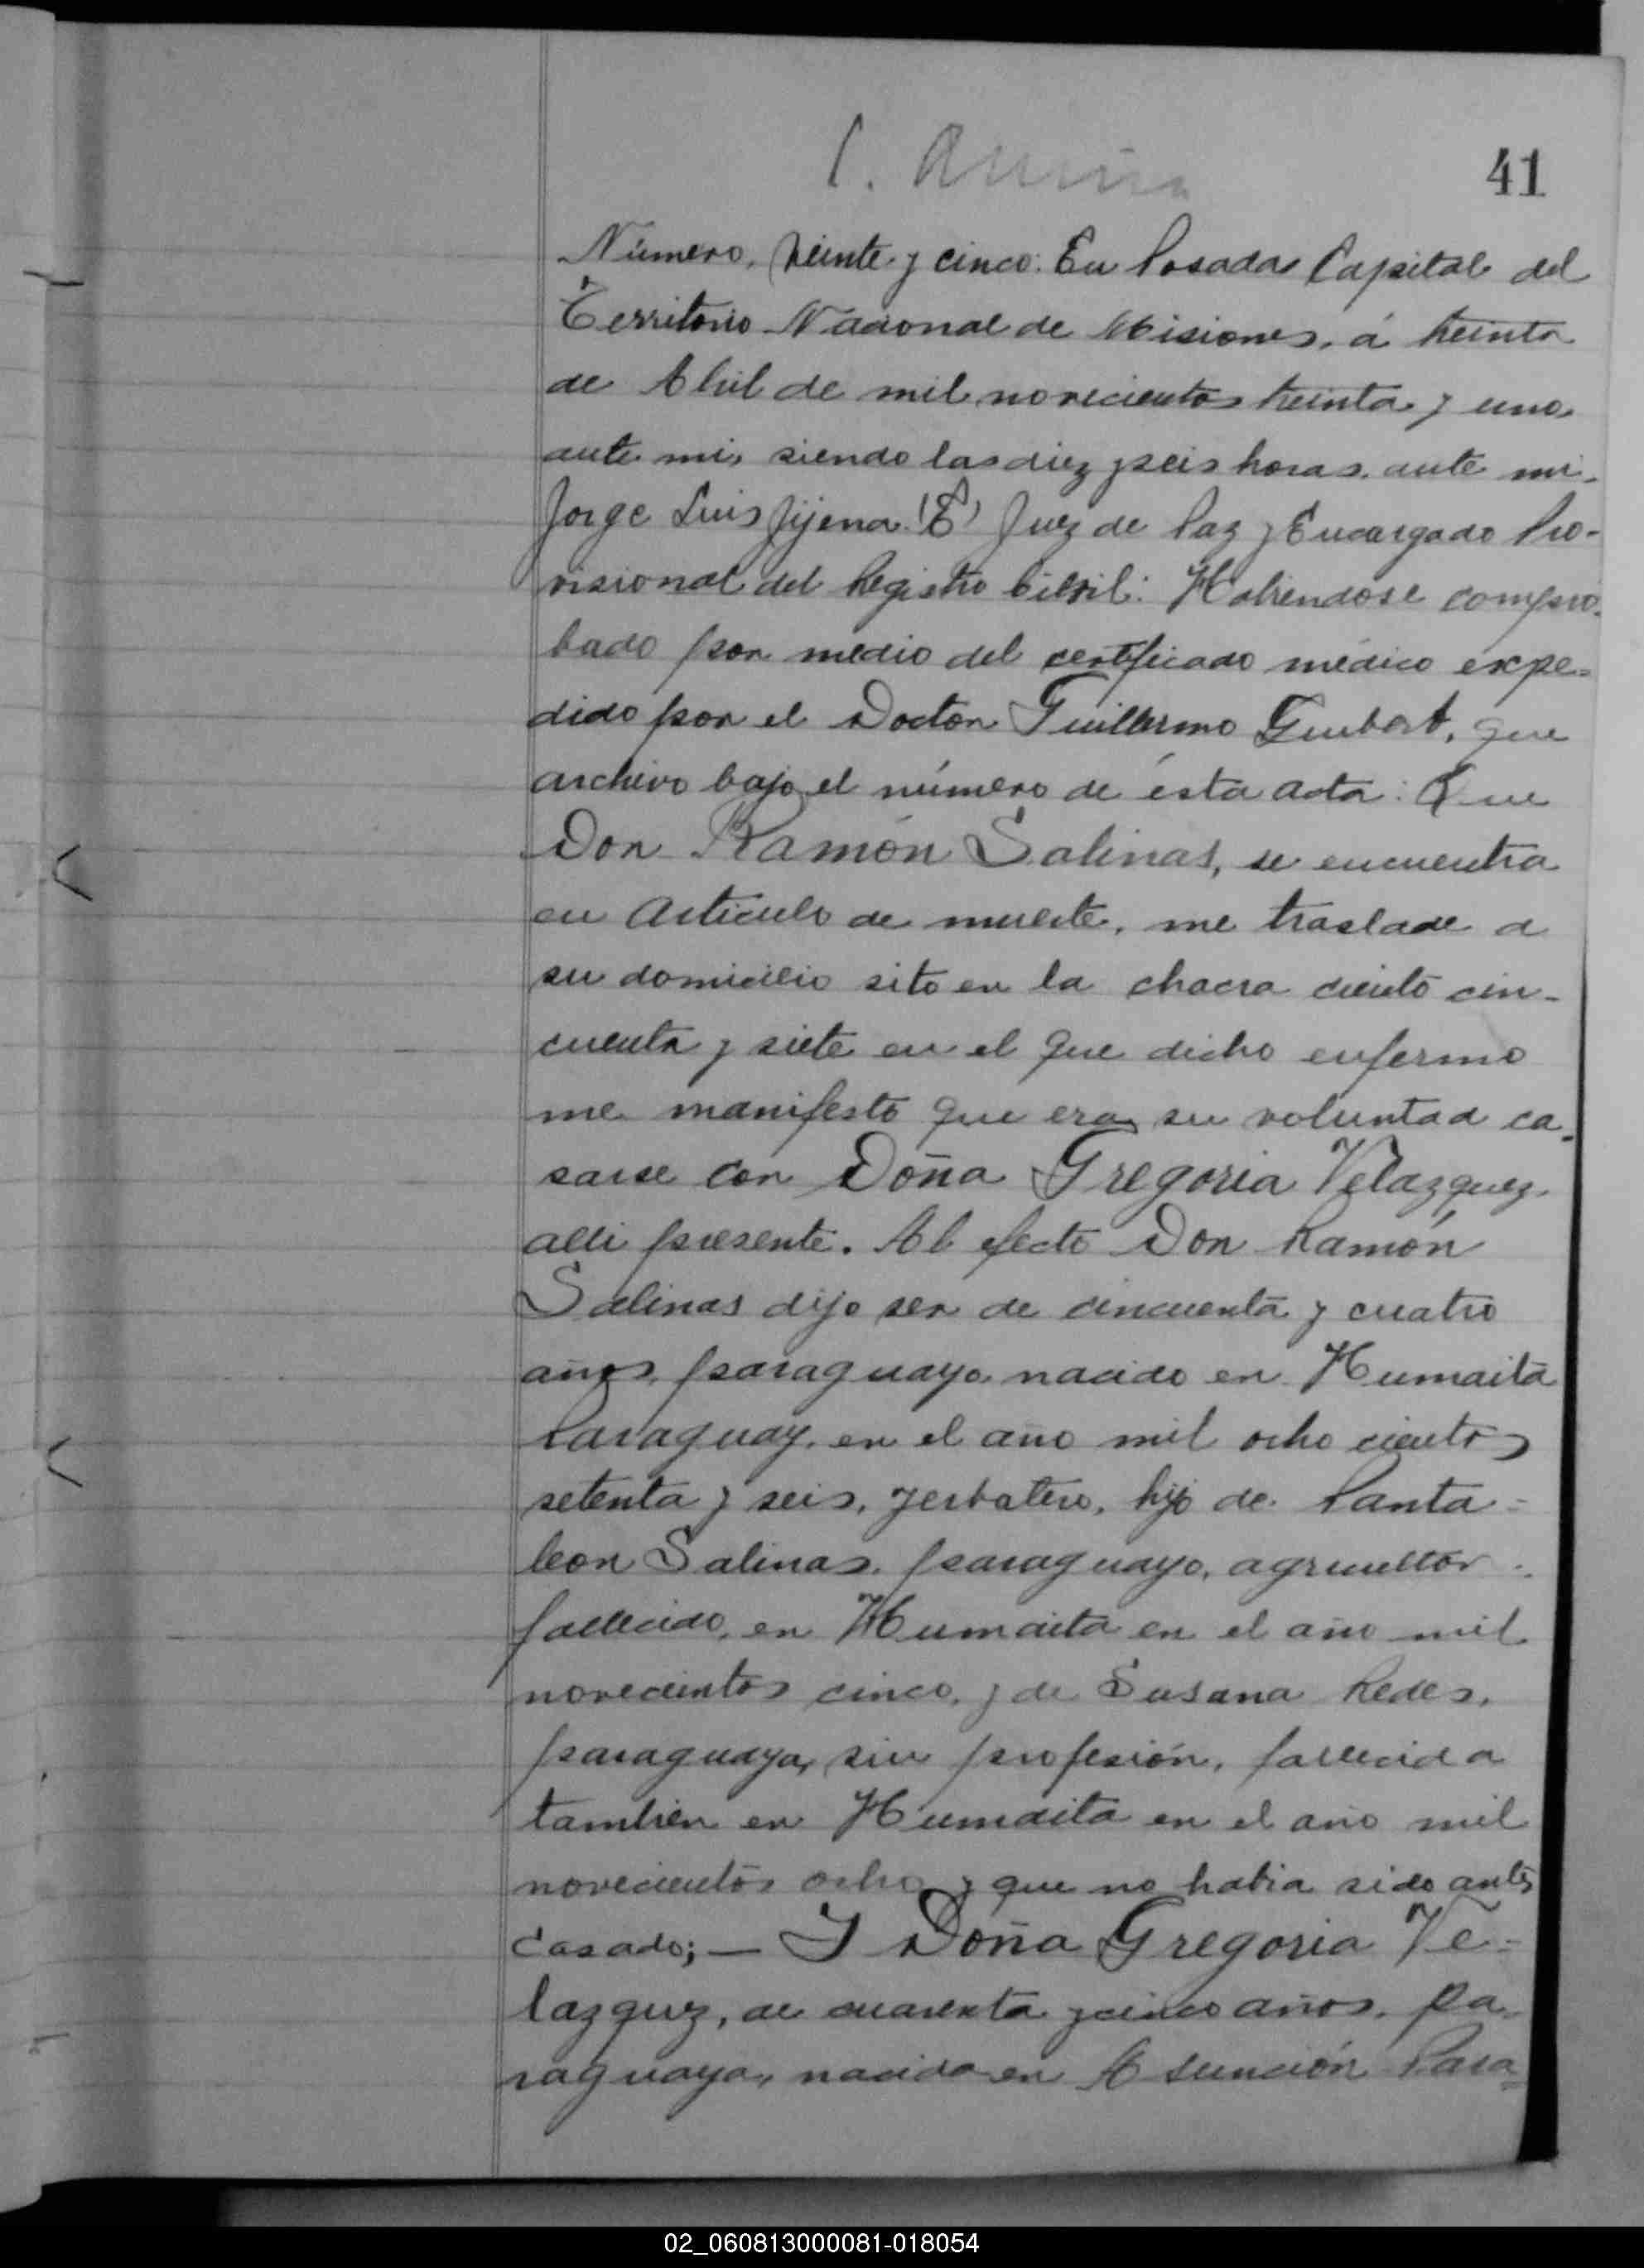 41
Número, veinte y cinco: En Posadas Capital del
Territorio Nacional de Misiones, á treinta
de Abril de mil novecientos treinta y uno
ante mi, siendo las diez y seis horas, ante mi
Jorge Luis Jijena (E) Juez de Paz y Encargado Pro-
visional del Registro Civil: Habiendose compro-
bado por medio del certificado médico expe-
dido por el Doctor Guillermo que
archivo bajo el número de ésta acta: Que
Don Ramón Salinas, se encuentra
en Articulo de muerte, me traslade a
su domicilio sito en la chacra ciento cin-
cuenta y siete en el que dicho enfermo
me manifestó que era su voluntad ca-
sarse con Doña Gregoria Velazquez,
alli presente. Al efecto Don Ramón
Salinas dijo ser de cincuenta y cuatro
años, paraguayo, nacido en Humaitá
Paraguay, en el año mil ocho cientos
setenta y seis, yerbatero, hijo de Panta-
leon Salinas, paraguayo, agricultor
fallecido, en Humaita en el año mil
novecientos cinco, y de Susana
paraguaya, sin profesión, fallecida
tambien en Humaita en el año mil
novecientos ocho y que no habia sido antes
casado; — Y Doña Gregoria Ve-
lazquez, de cuarenta y cinco años, pa-
raguaya, nacida en Asunción Para-
02_060813000081-018054